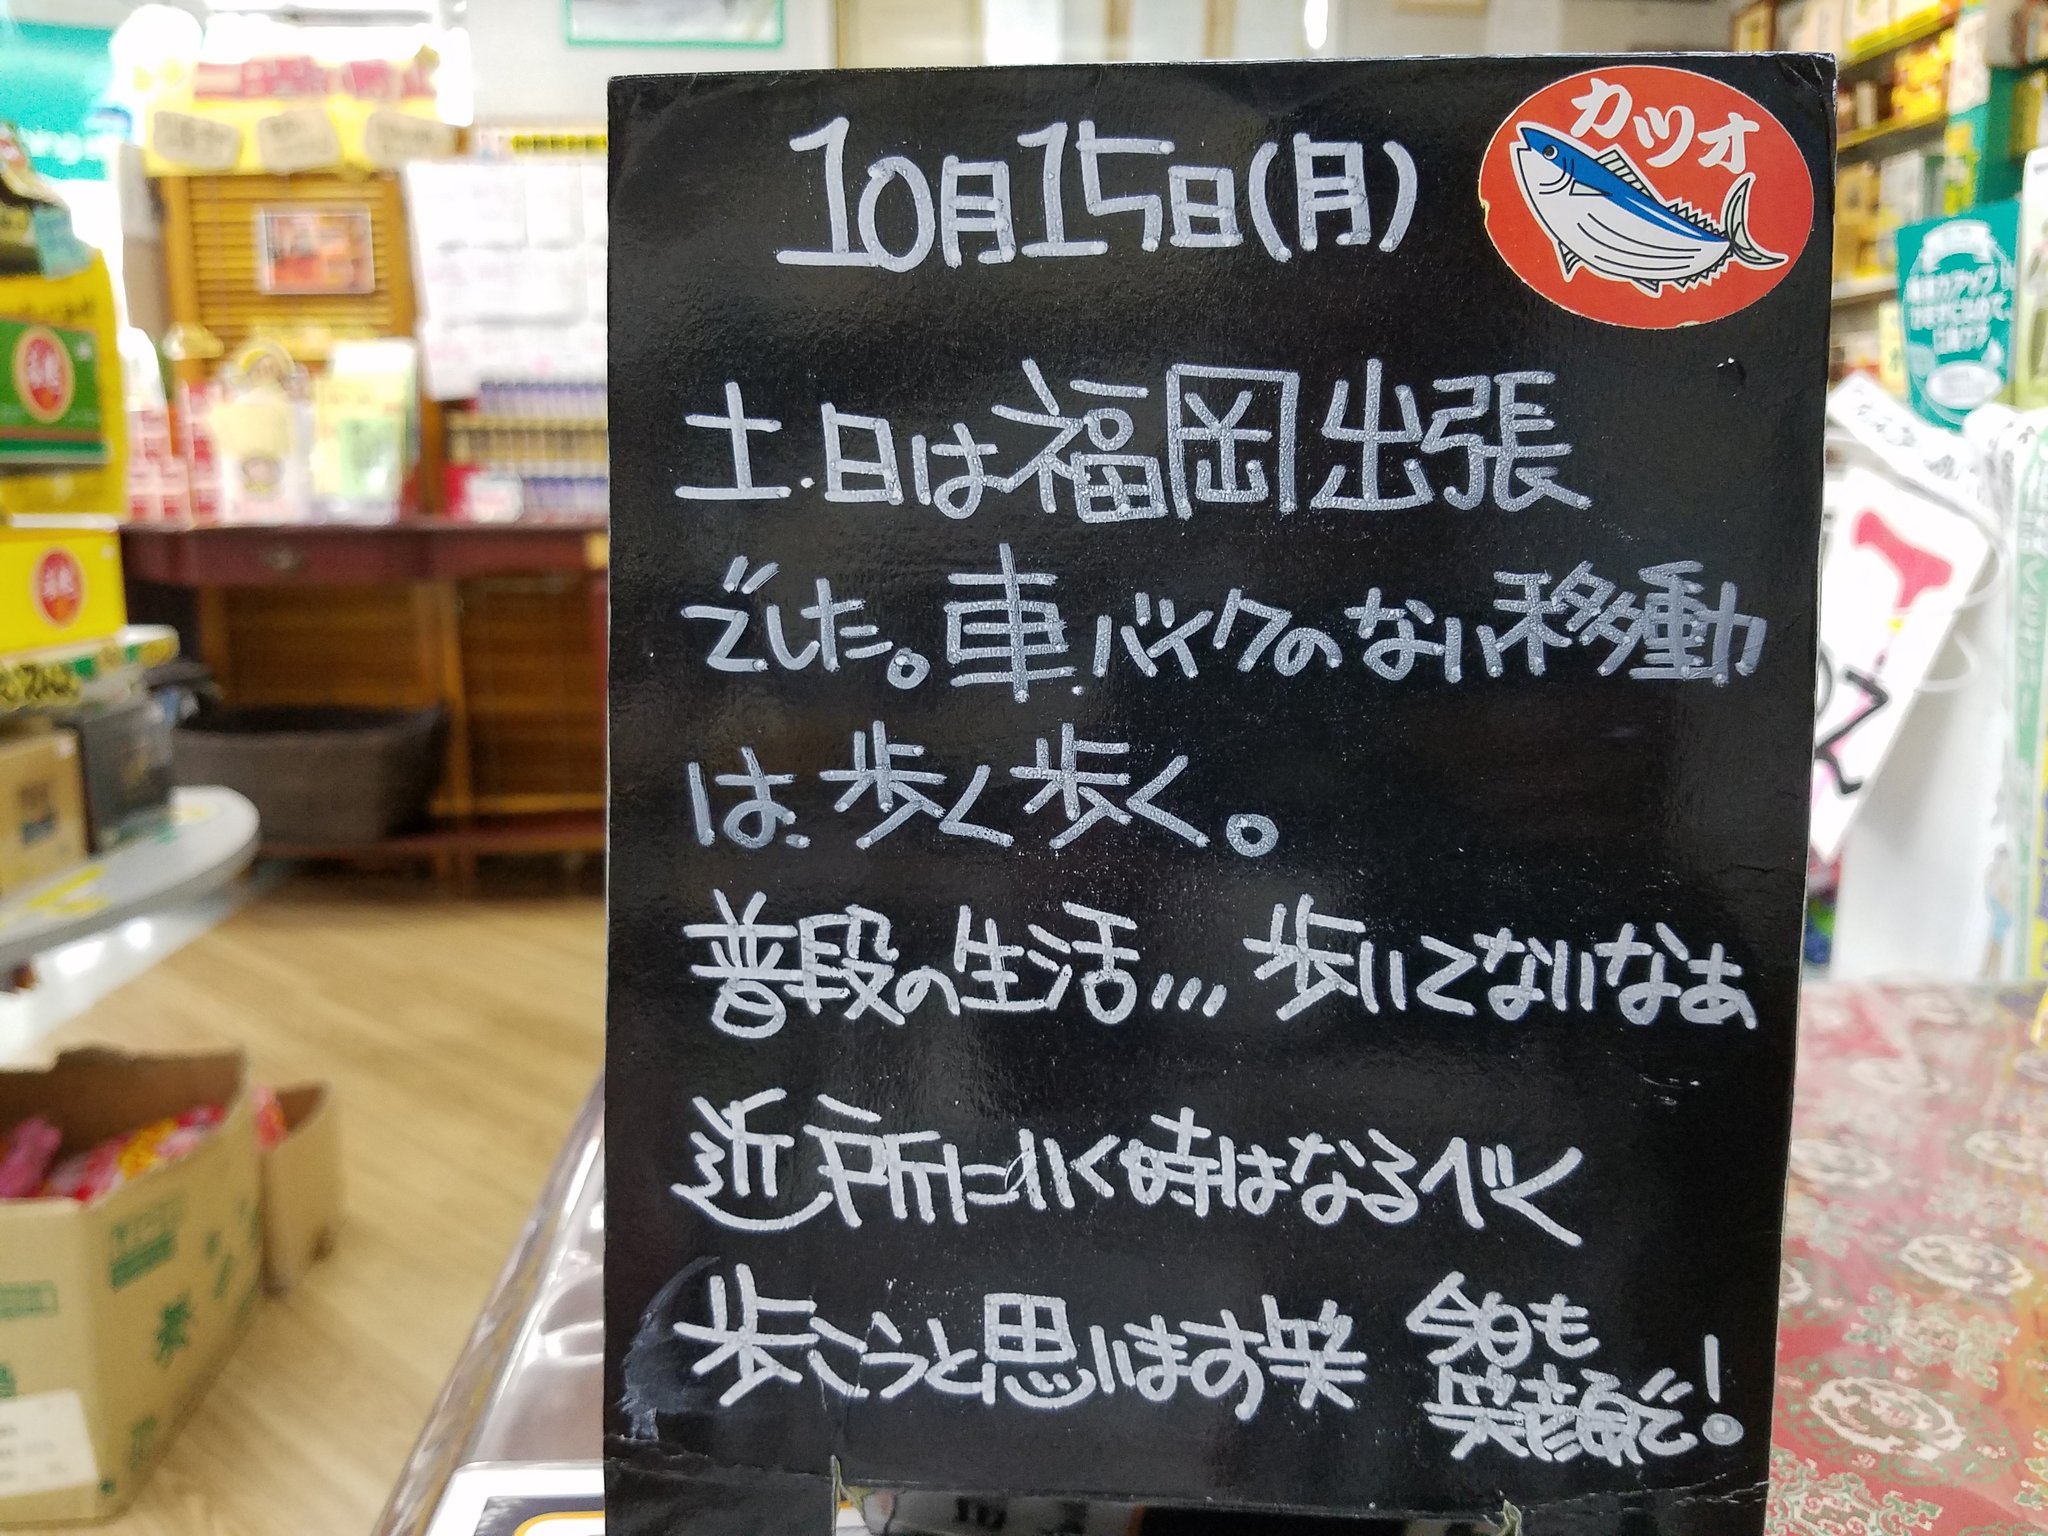 10月15日(月)
カツオ
土.日は福岡出張
でした。車.バイクのない移動
は.歩く歩く。
普段の生活... 歩いてないなぁ
近所にいく時はなるべく
歩こうと思います笑
今日も
笑顔で!